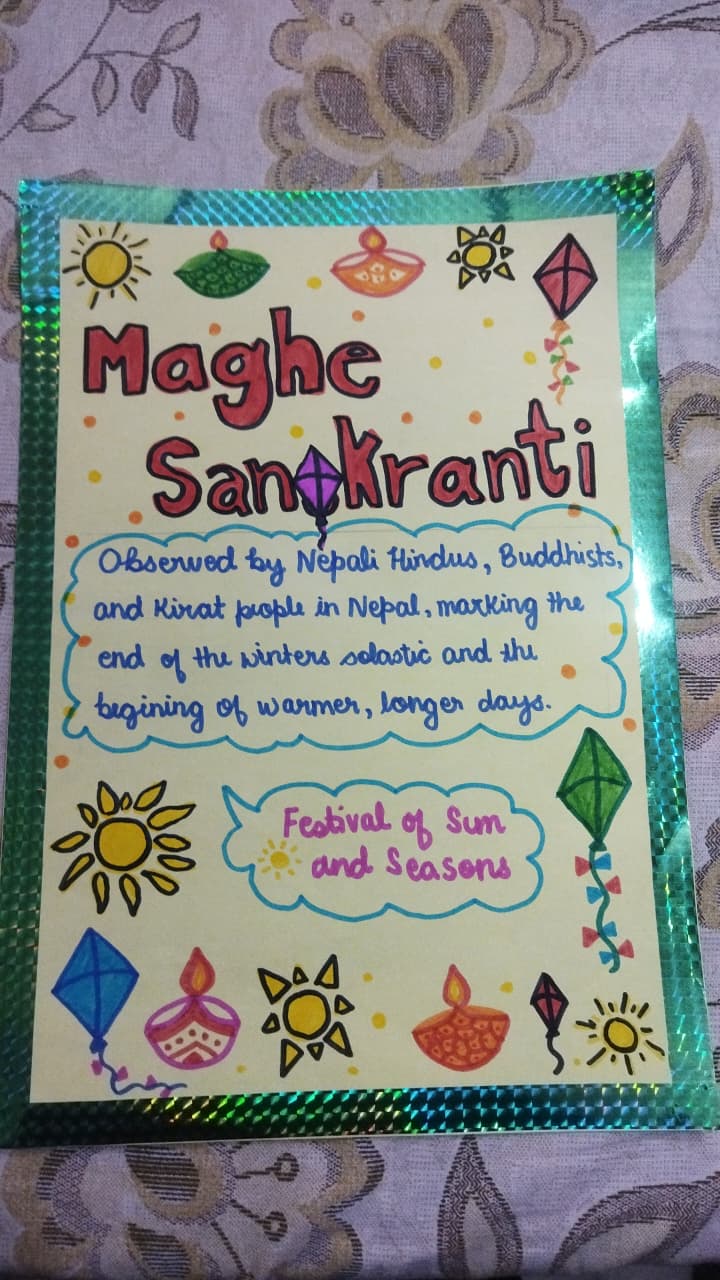 Maghe
Sankranti
Observed by Nepali Hindus, Buddhists,
and Kirat people in Nepal, marking the
end of the winters solastic and the
begining of warmer, longer days.
Festival of Sun
and Seasons